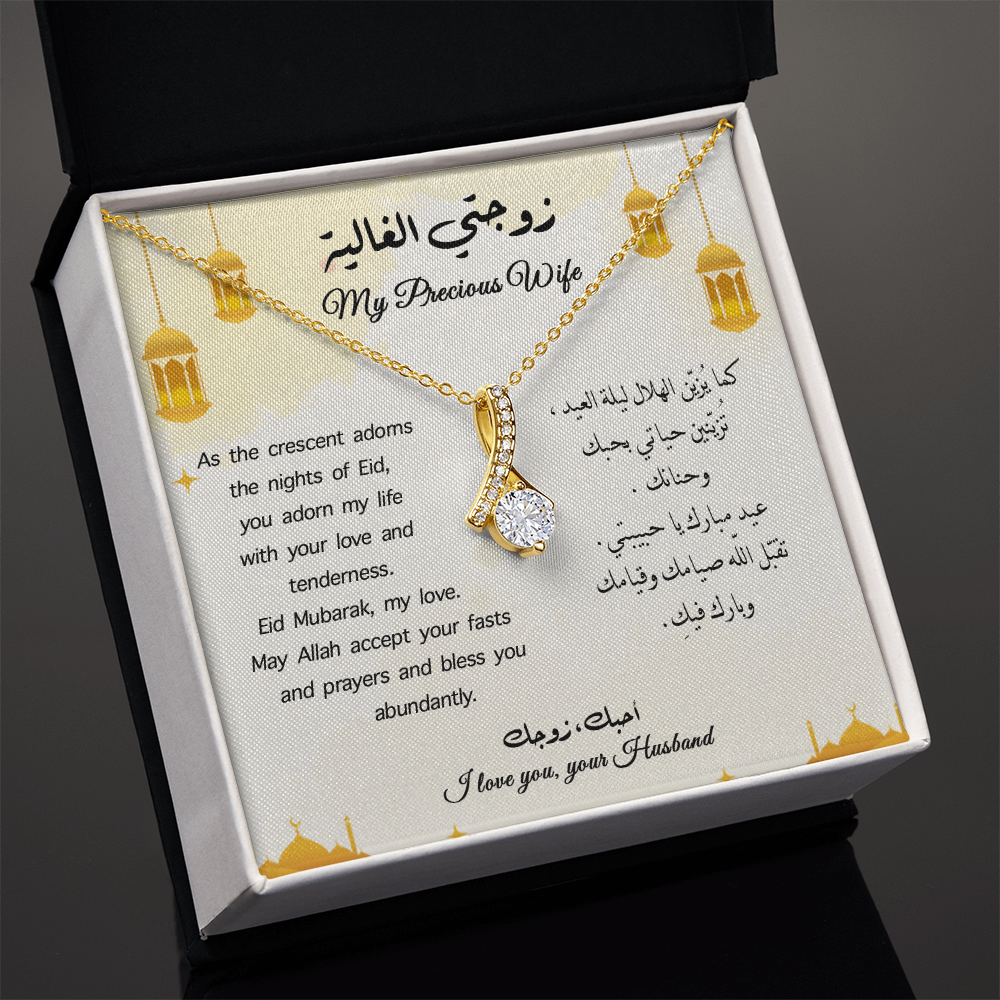 زوجتي الغالية
My Precious Wife
As the crescent adorns
the nights of Eid,
you adorn my life
with your love and
tenderness.
Eid Mubarak, my love.
May Allah accept your fasts
and prayers and bless you
abundantly.
كما يُزيّن الهلال ليلة العيد ،
تُزيّنين حياتي بحبك
وحنانك .
عيد مبارك يا حبيبتي .
تقبّل الله صيامك وقيامك
وبارك فيكِ .
أحبك، زوجك
I love you, your Husband